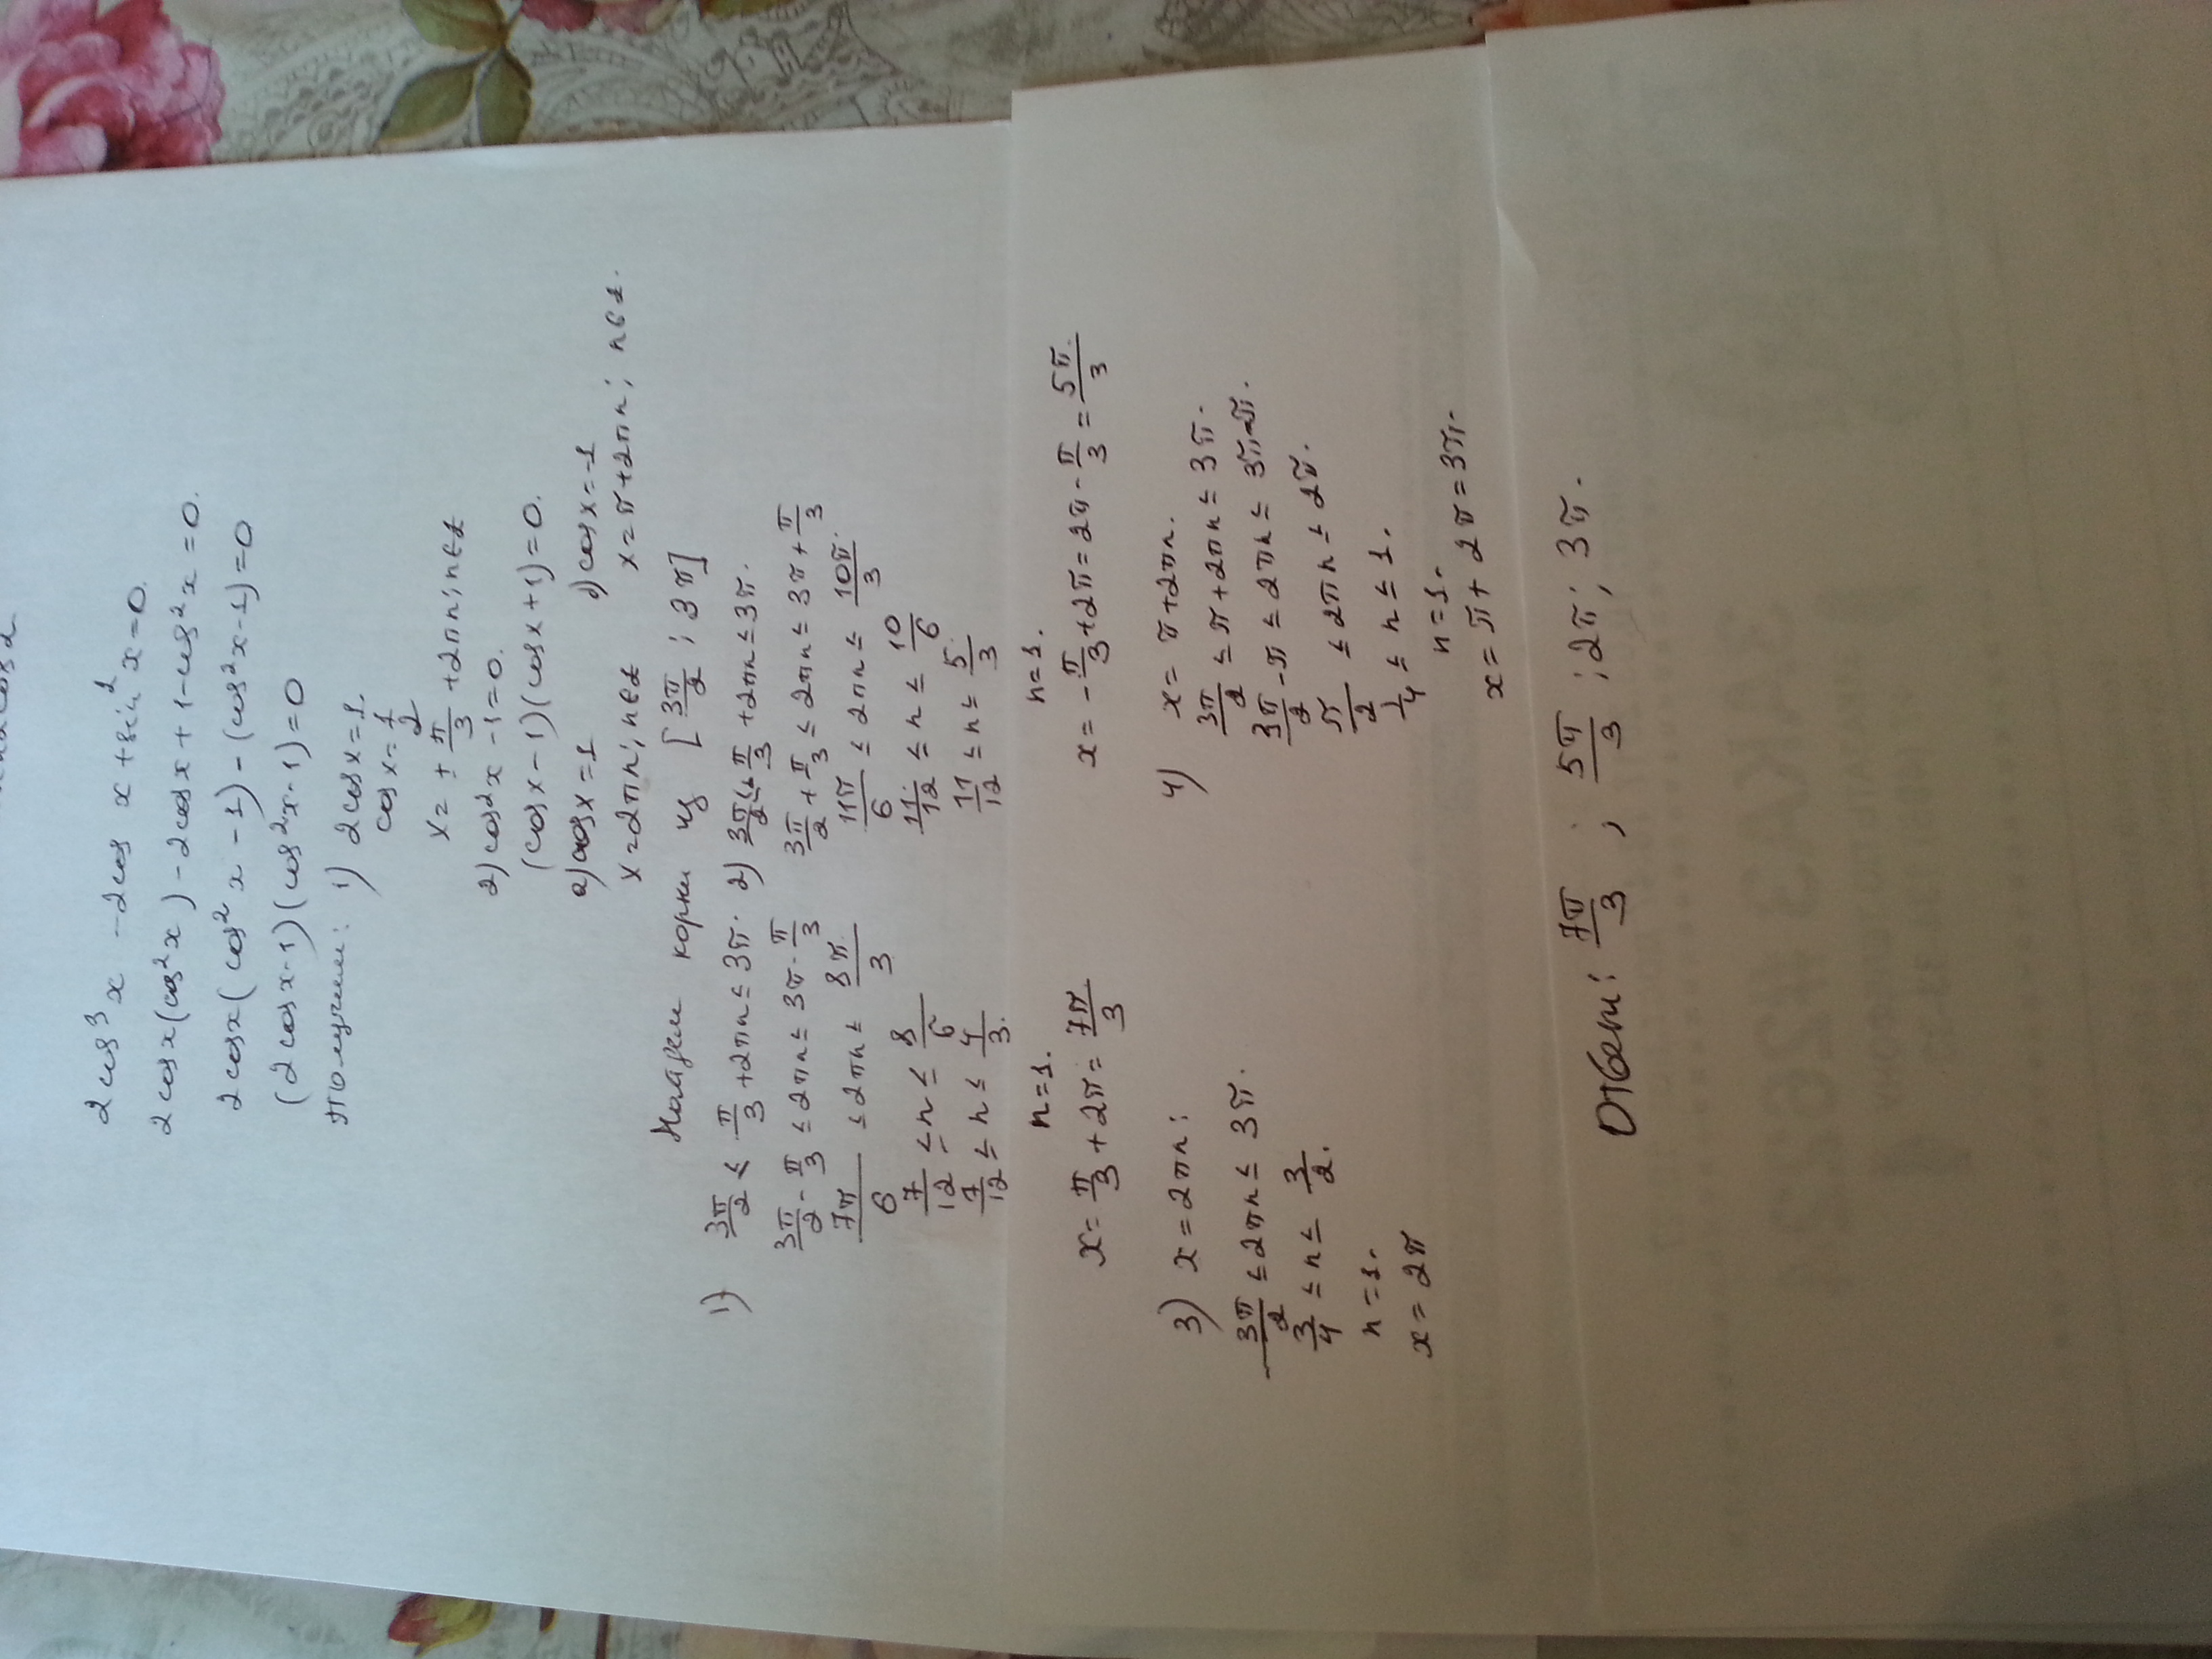 2cos³x - 2cos x + sin²x = 0.
2cosx(cos²x) - 2cosx + 1 - cos²x = 0.
2cosx(cos²x - 1) - (cos²x - 1) = 0
(2cosx - 1)(cos²x - 1) = 0
Получим: 1) 2cosx = 1.
cosx = 1/2
x = ± π/3 + 2πn; n∈z
2) cos²x - 1 = 0.
(cosx - 1)(cosx + 1) = 0.
a) cosx = 1
x = 2πn; n∈z
) cosx = -1
x = π + 2πn; n∈z.
Найдем корни из [3π/2; 3π]
1) 3π/2 ≤ π/3 + 2πn ≤ 3π.
3π/2 - π/3 ≤ 2πn ≤ 3π - π/3
7π/6 ≤ 2πn ≤ 8π/3
7/12 ≤ n ≤ 8/6
7/12 ≤ n ≤ 4/3.
n = 1.
x = π/3 + 2π = 7π/3
2) 3π/2 ≤ -π/3 + 2πn ≤ 3π.
3π/2 + π/3 ≤ 2πn ≤ 3π + π/3
11π/6 ≤ 2πn ≤ 10π/3.
11/12 ≤ n ≤ 10/6
11/12 ≤ n ≤ 5/3.
n = 1.
x = -π/3 + 2π = 2π - π/3 = 5π/3.
3) x = 2πn:
3π/2 ≤ 2πn ≤ 3π.
3/4 ≤ n ≤ 3/2.
n = 1.
x = 2π
4) x = π + 2πn.
3π/2 ≤ π + 2πn ≤ 3π.
3π/2 - π ≤ 2πn ≤ 3π - π.
π/2 ≤ 2πn ≤ 2π.
1/4 ≤ n ≤ 1.
n = 1.
x = π + 2π = 3π.
Ответ: 7π/3; 5π/3; 2π; 3π.